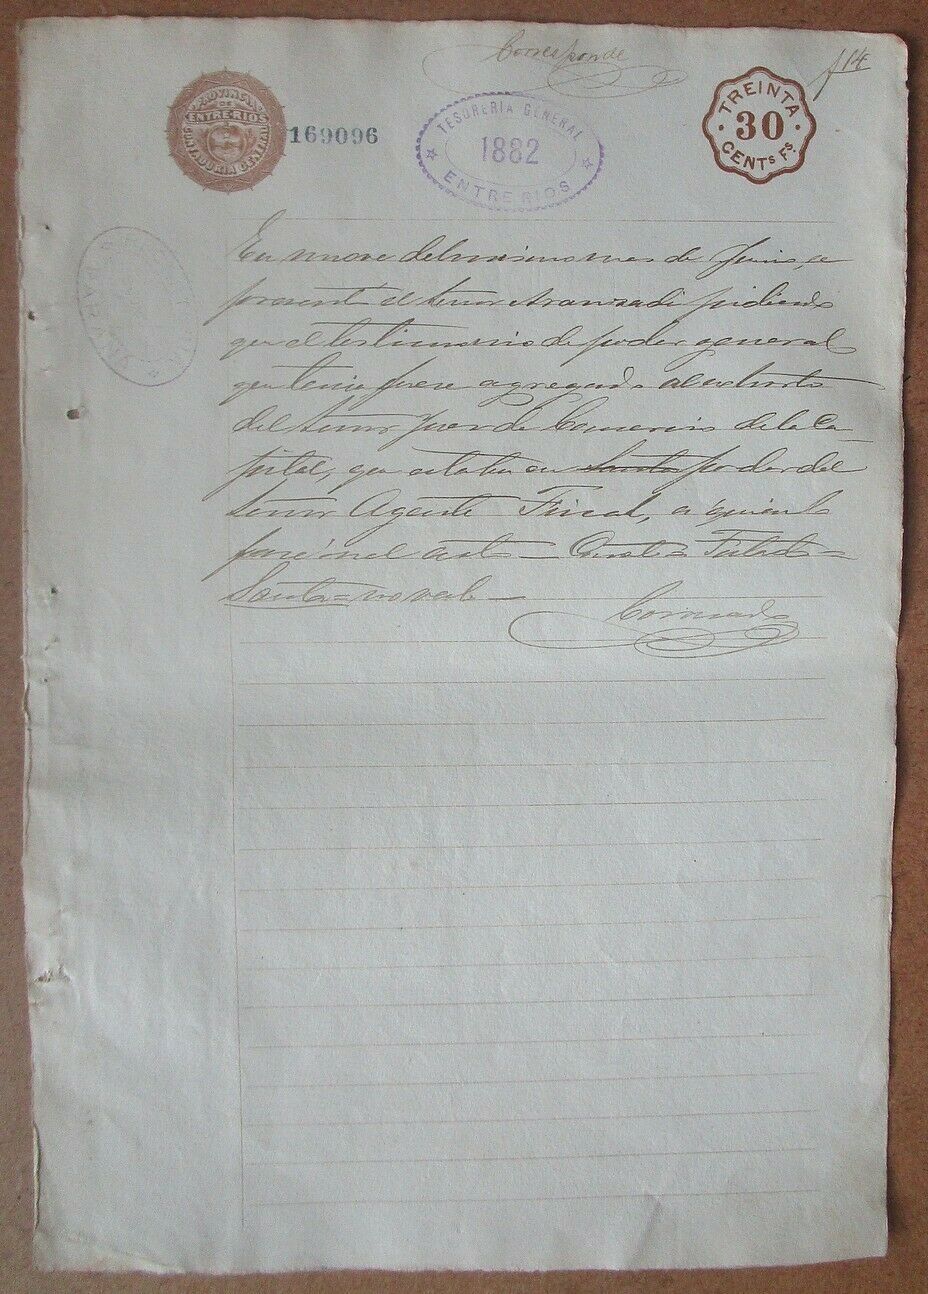 Corresponde
f 14
PROVINCIA
DE
ENTRE RIOS
CONTADURIA GENERAL
169096
TESORERIA GENERAL
1882
ENTRE RIOS
TREINTA
30
CENTs Fs.
En nueve del mismo mes de Junio, se
presentó el Señor Aranzadi pidiendo
que el testimonio de poder general
que tenia fuese agregado al
del Señor Juez de Comercio de la Ca-
pital, que estaba en Santa poder del
Señor Agente Fiscal, a quien lo
pasé en el acto —
Santa = no vale —